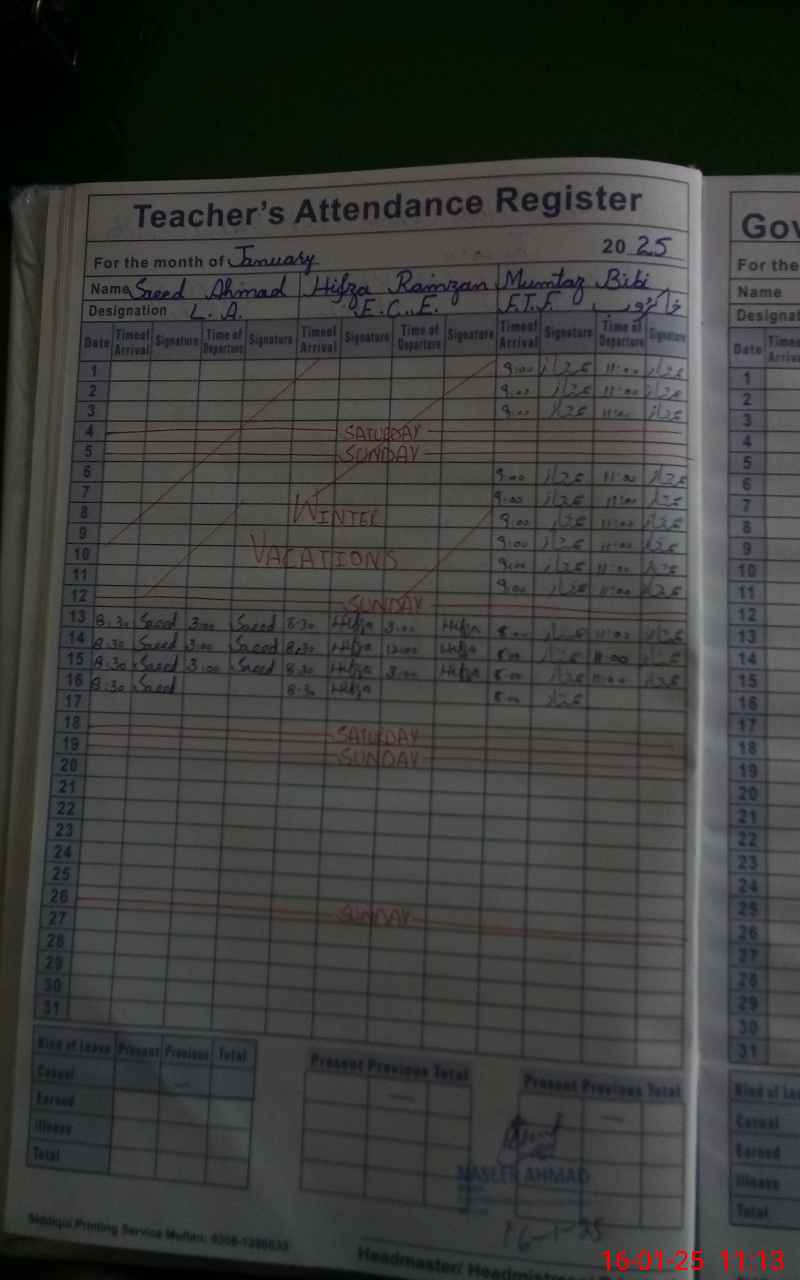 Teacher's Attendance Register
For the month of January 2025
Name Saeed Ahmad Hifza Ramzan Mumtaz Bibi
Designation L.A. E.C.E. F.T.F. خاکروب
Date Time of Arrival Signature Time of Departure Signature Time of Arrival Signature Time of Departure Signature Time of Arrival Signature Time of Departure Signature
1 9:00 11:00
2 9:00 11:00
3 9:00 11:00
4 SATURDAY
5 SUNDAY
6 9:00 11:00
7 9:00 11:00
8 WINTER 9:00 11:00
9 9:00 11:00
10 VACATIONS 9:00 11:00
11 9:00 11:00
12 SUNDAY
13 8:30 Saeed 3:00 Saeed 8:30 Hifza 3:00 Hifza 8:00 11:00
14 8:30 Saeed 3:00 Saeed 8:30 Hifza 12:00 Hifza 8:00 11:00
15 8:30 Saeed 3:00 Saeed 8:30 Hifza 3:00 Hifza 8:00 11:00
16 8:30 Saeed 8:30 Hifza 8:00
17
18 SATURDAY
19 SUNDAY
20
21
22
23
24
25
26 SUNDAY
27
28
29
30
31
Kind of Leave Present Previous Total Present Previous Total Present Previous Total
Casual
Earned
Illness
Total
NASEER AHMAD
16-1-25
Siddiqui Printing Service Multan:
Headmaster/
Gov
For the
Name
Designat
Date Time Arriva
1
2
3
4
5
6
7
8
9
10
11
12
13
14
15
16
17
18
19
20
21
22
23
24
25
26
27
28
29
30
31
Kind of Lea
Casual
Earned
Illness
Total
16-01-25 11:13